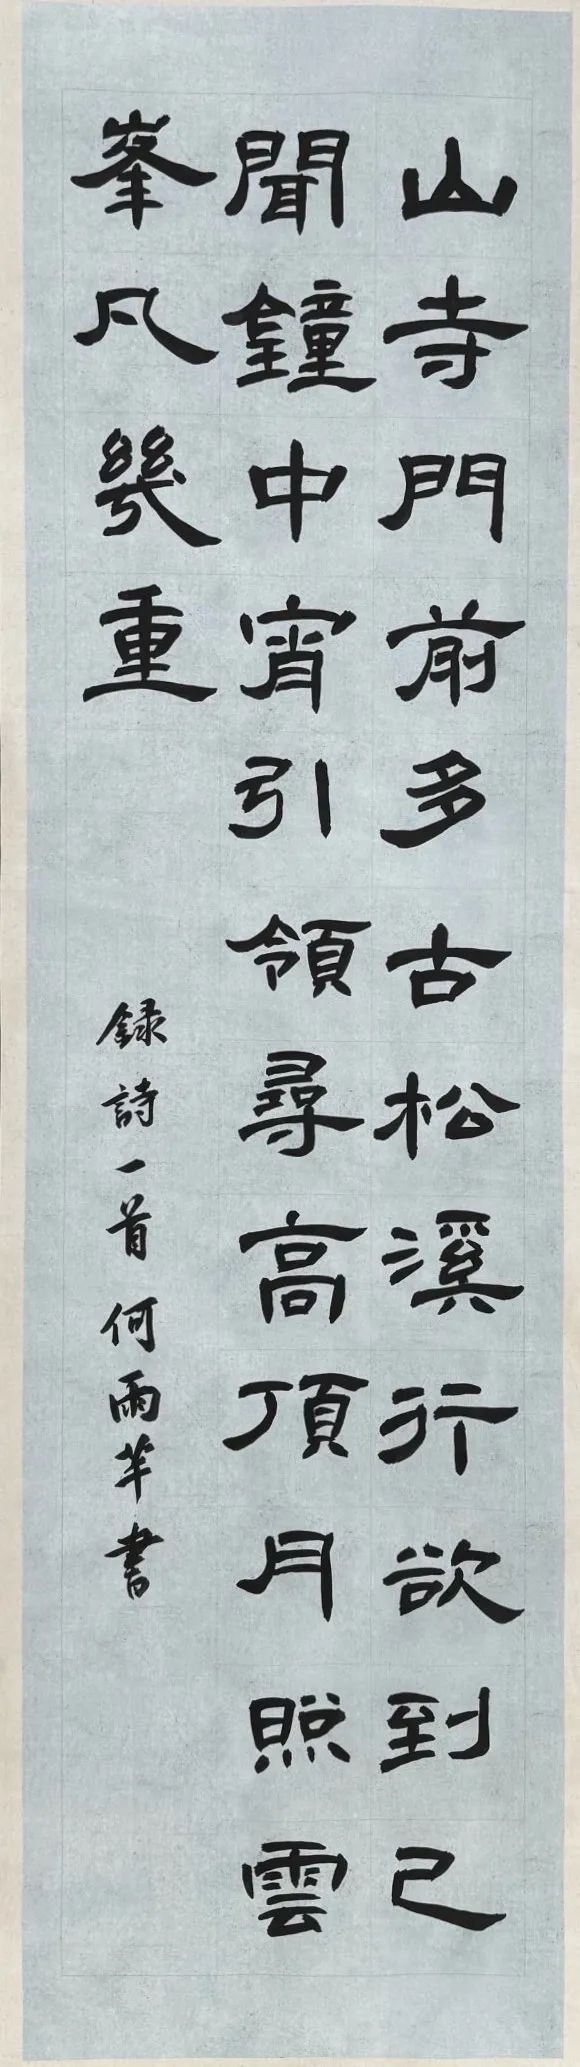 山寺門前多古松溪行欲到已
聞鐘中宵引領尋高頂月照雲
峯凡幾重
録詩一首何雨芊書